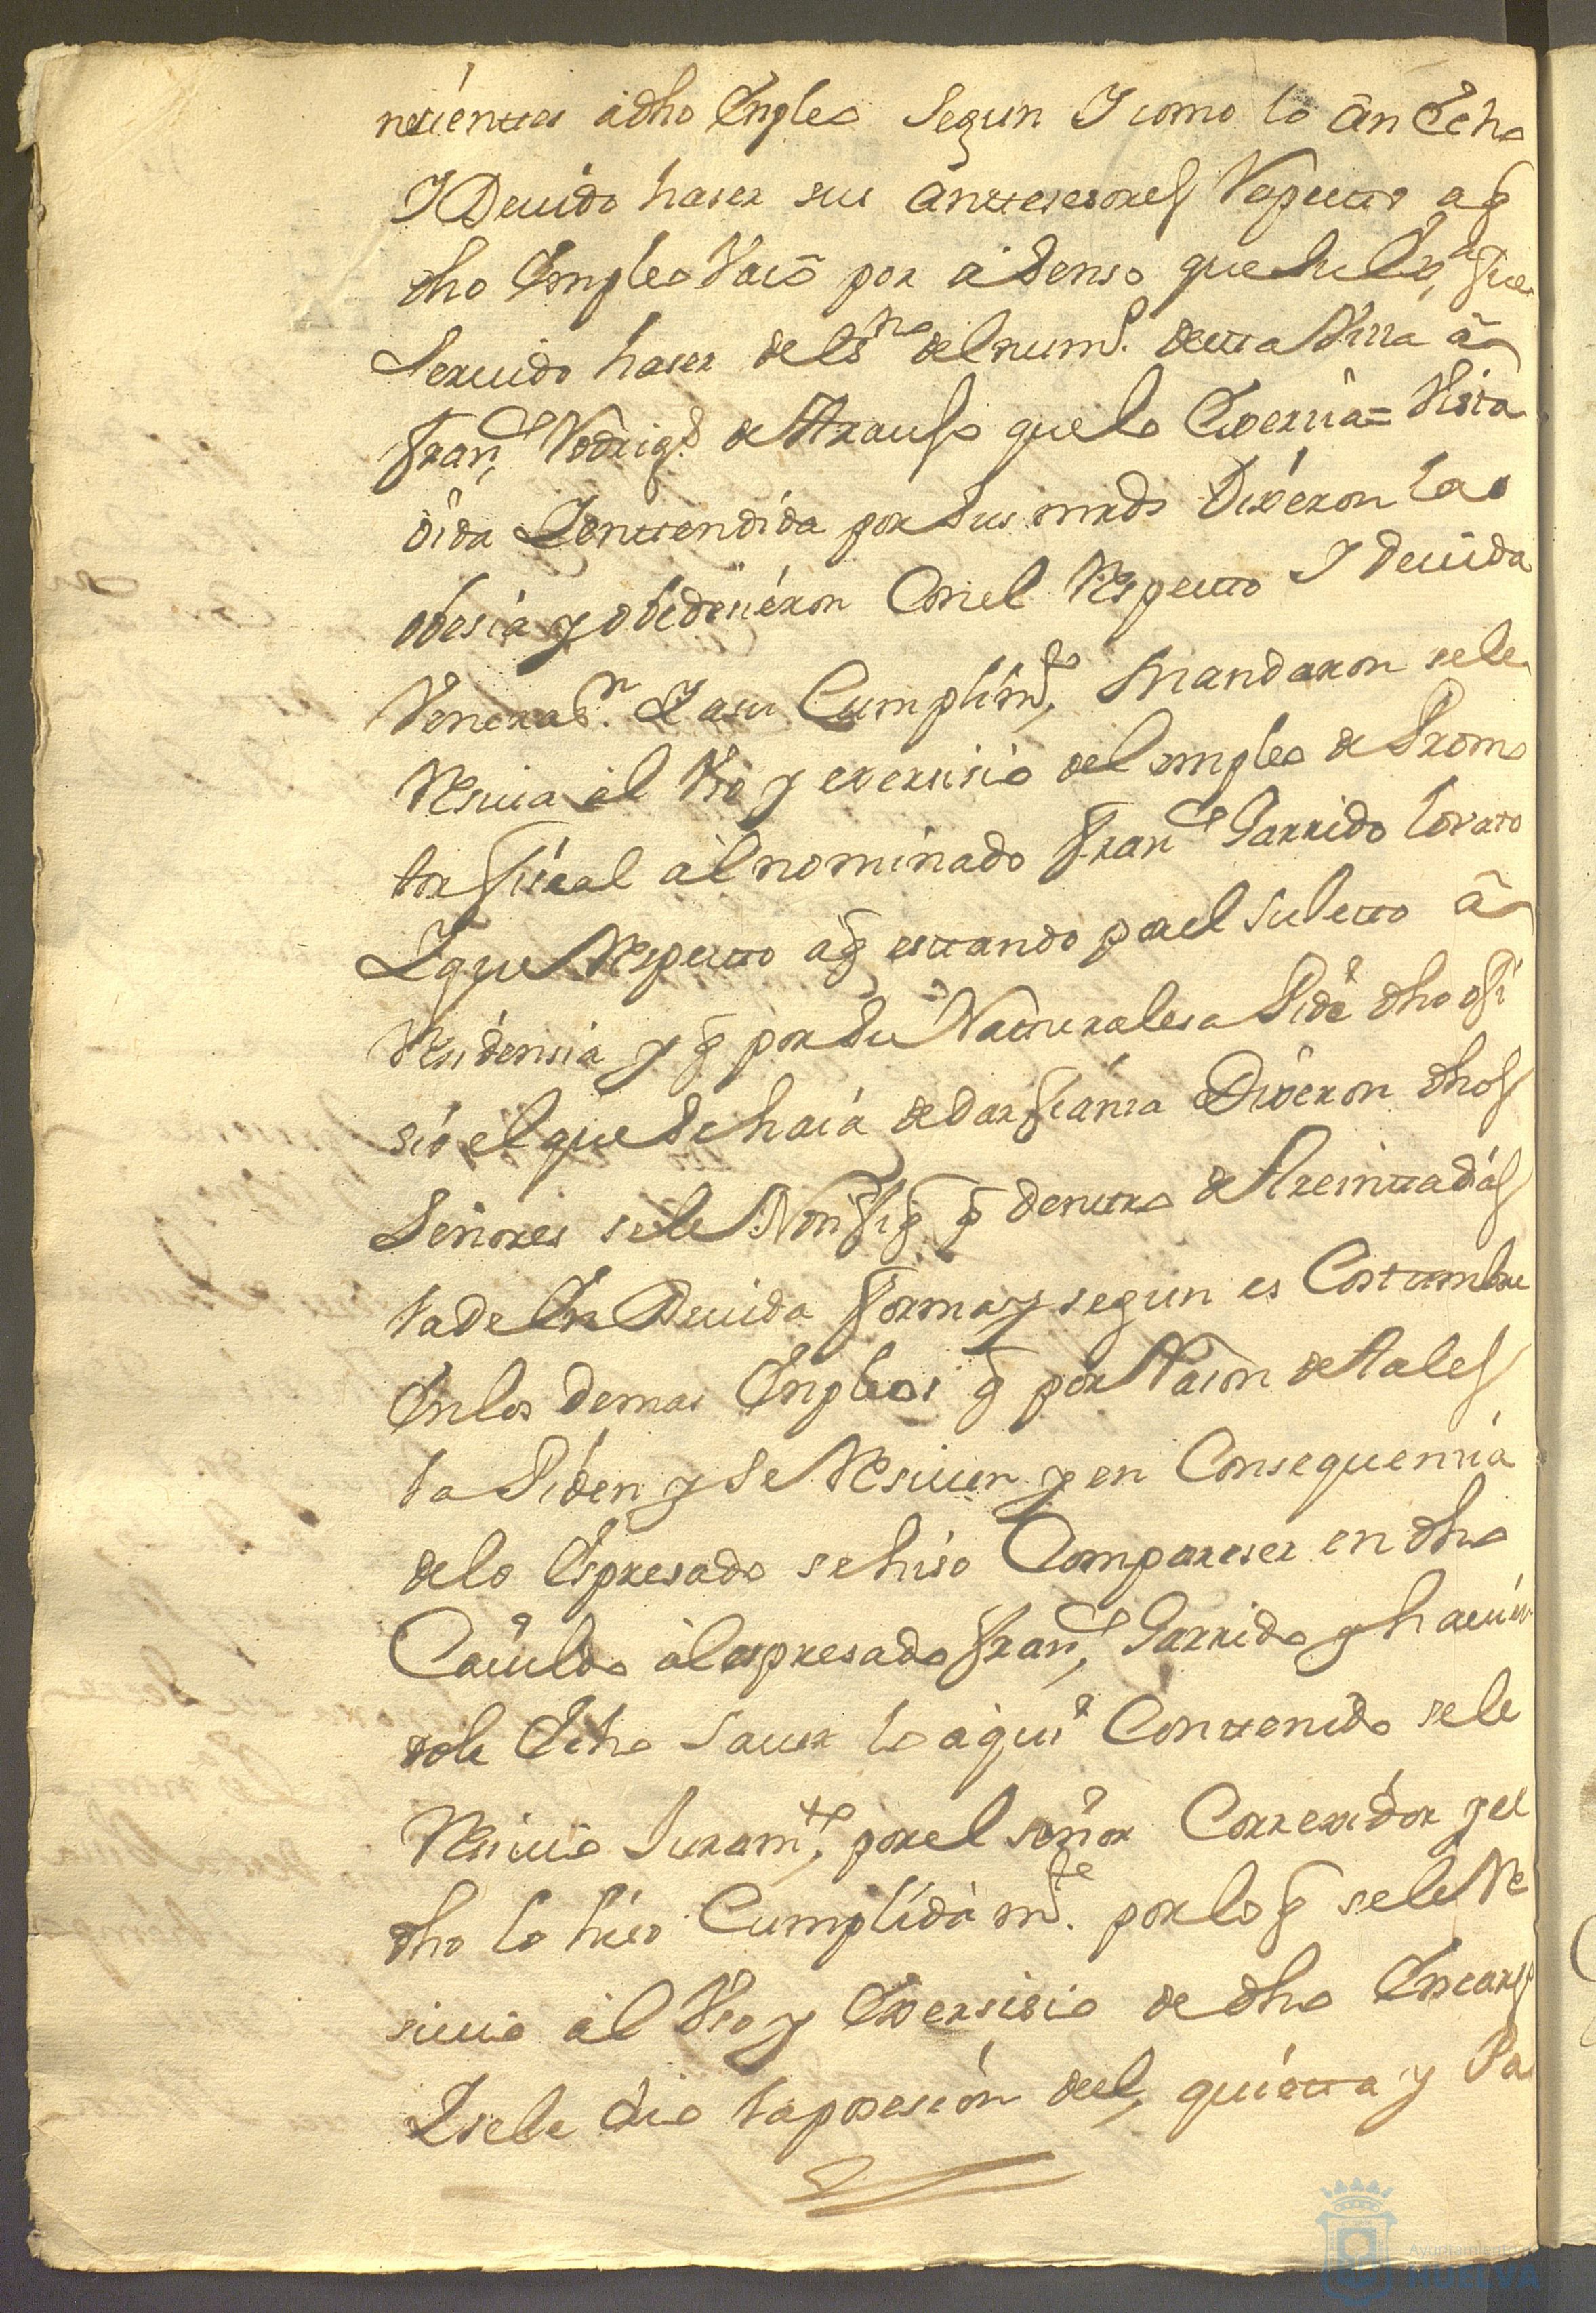 necientes a dho Enpleo Segun Y como lo an Echo
Y Deuido haser sus anttesesores Respecto a q̃
dho Empleo Vacó por asenso que Su Exª fue
Seruido haser de Essno del numº desta Villa â
Franco Rodrigs de Araujo que lo Exercia = Vista
oida Y enttendida por Sus mrds Dixeron la
obesia y obedecieron Con el Respecto Y deuida
Veneraon. Y asu Cumplimto, Mandaron sele
Resiua al Vso y exersisio del empleo de Promo
tor fiscal al nominado Franco Garrido lovato
Y que Respecto a q̃ esttando por el suletto â
Residensia y q̃ por su Natturalesa Pide dho ofi
sio el que Se haia de dar fianza Dixeron dhos
Señores sele Nottifiq̃ q̃ dentro de Treintta dias
la de En Deuida forma y segun es Costtumbre
En los demas Enpleos q̃ por Rason de tales
la Piden y Se Resiuen y en Consequencia
delo Espresado sehiso Compareser en dho
Cauildo al espresado Franco Garrido y hauien
dole Echo Sauer lo aqui Conttenido sele
Resiuio Juramto, por el señor Correxidor y el
dho lo hiso Cumplidamte. por lo q̃ sele Re
siuio al Vso y Exersisio de dho Encargo
Y sele dio la posesion del, quietta y Pa
Ayuntamiento
HUELVA